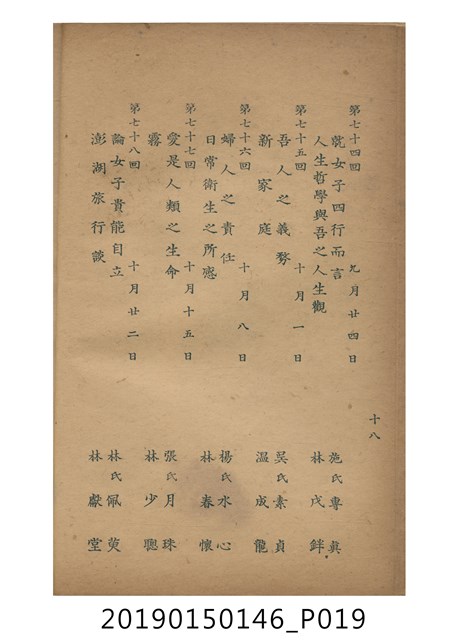 十八
第七十四回　九月廿四日
就女子四行而言　施氏專真
人生哲學與吾之人生觀　林戊鋅
第七十五回　十月一日
吾人之義務　吳氏素貞
新家庭　溫成龍
第七十六回　十月八日
婦人之責任　楊氏水心
日常衛生之所感　林春懷
第七十七回　十月十五日
愛是人類之生命　張氏月珠
霧　林少聰
第七十八回　十月廿二日
論女子貴能自立　林氏佩萸
澎湖旅行談　林獻堂
20190150146_P019